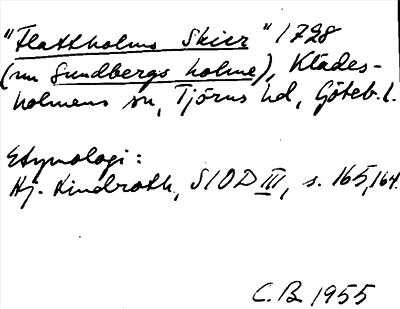 "Flatholms Skier" 1728
(nu Sundbergs holme), Klädes-
holmens sn, Tjörns hd, Göteb. l.
Etymologi:
Hj. Lindroth, SIOD III, s. 165, 164.
C. B. 1955